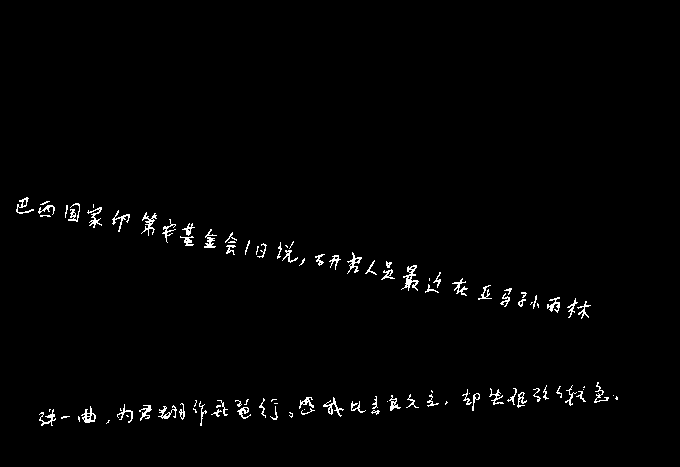 巴西国家印第安基金会1日说,研究人员最近在亚马孙雨林
弹一曲,为君翻作琵琶行。感我此言良久立,却坐促弦弦转急。